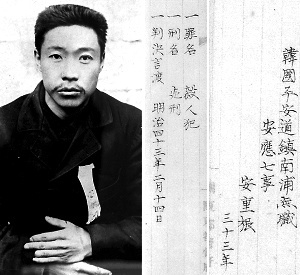 韓國平安道鎮南浦無職
安應七事
安重根
三十三年
一罪名 殺人犯
一刑名 死刑
一判決言渡 明治四十三年二月十四日